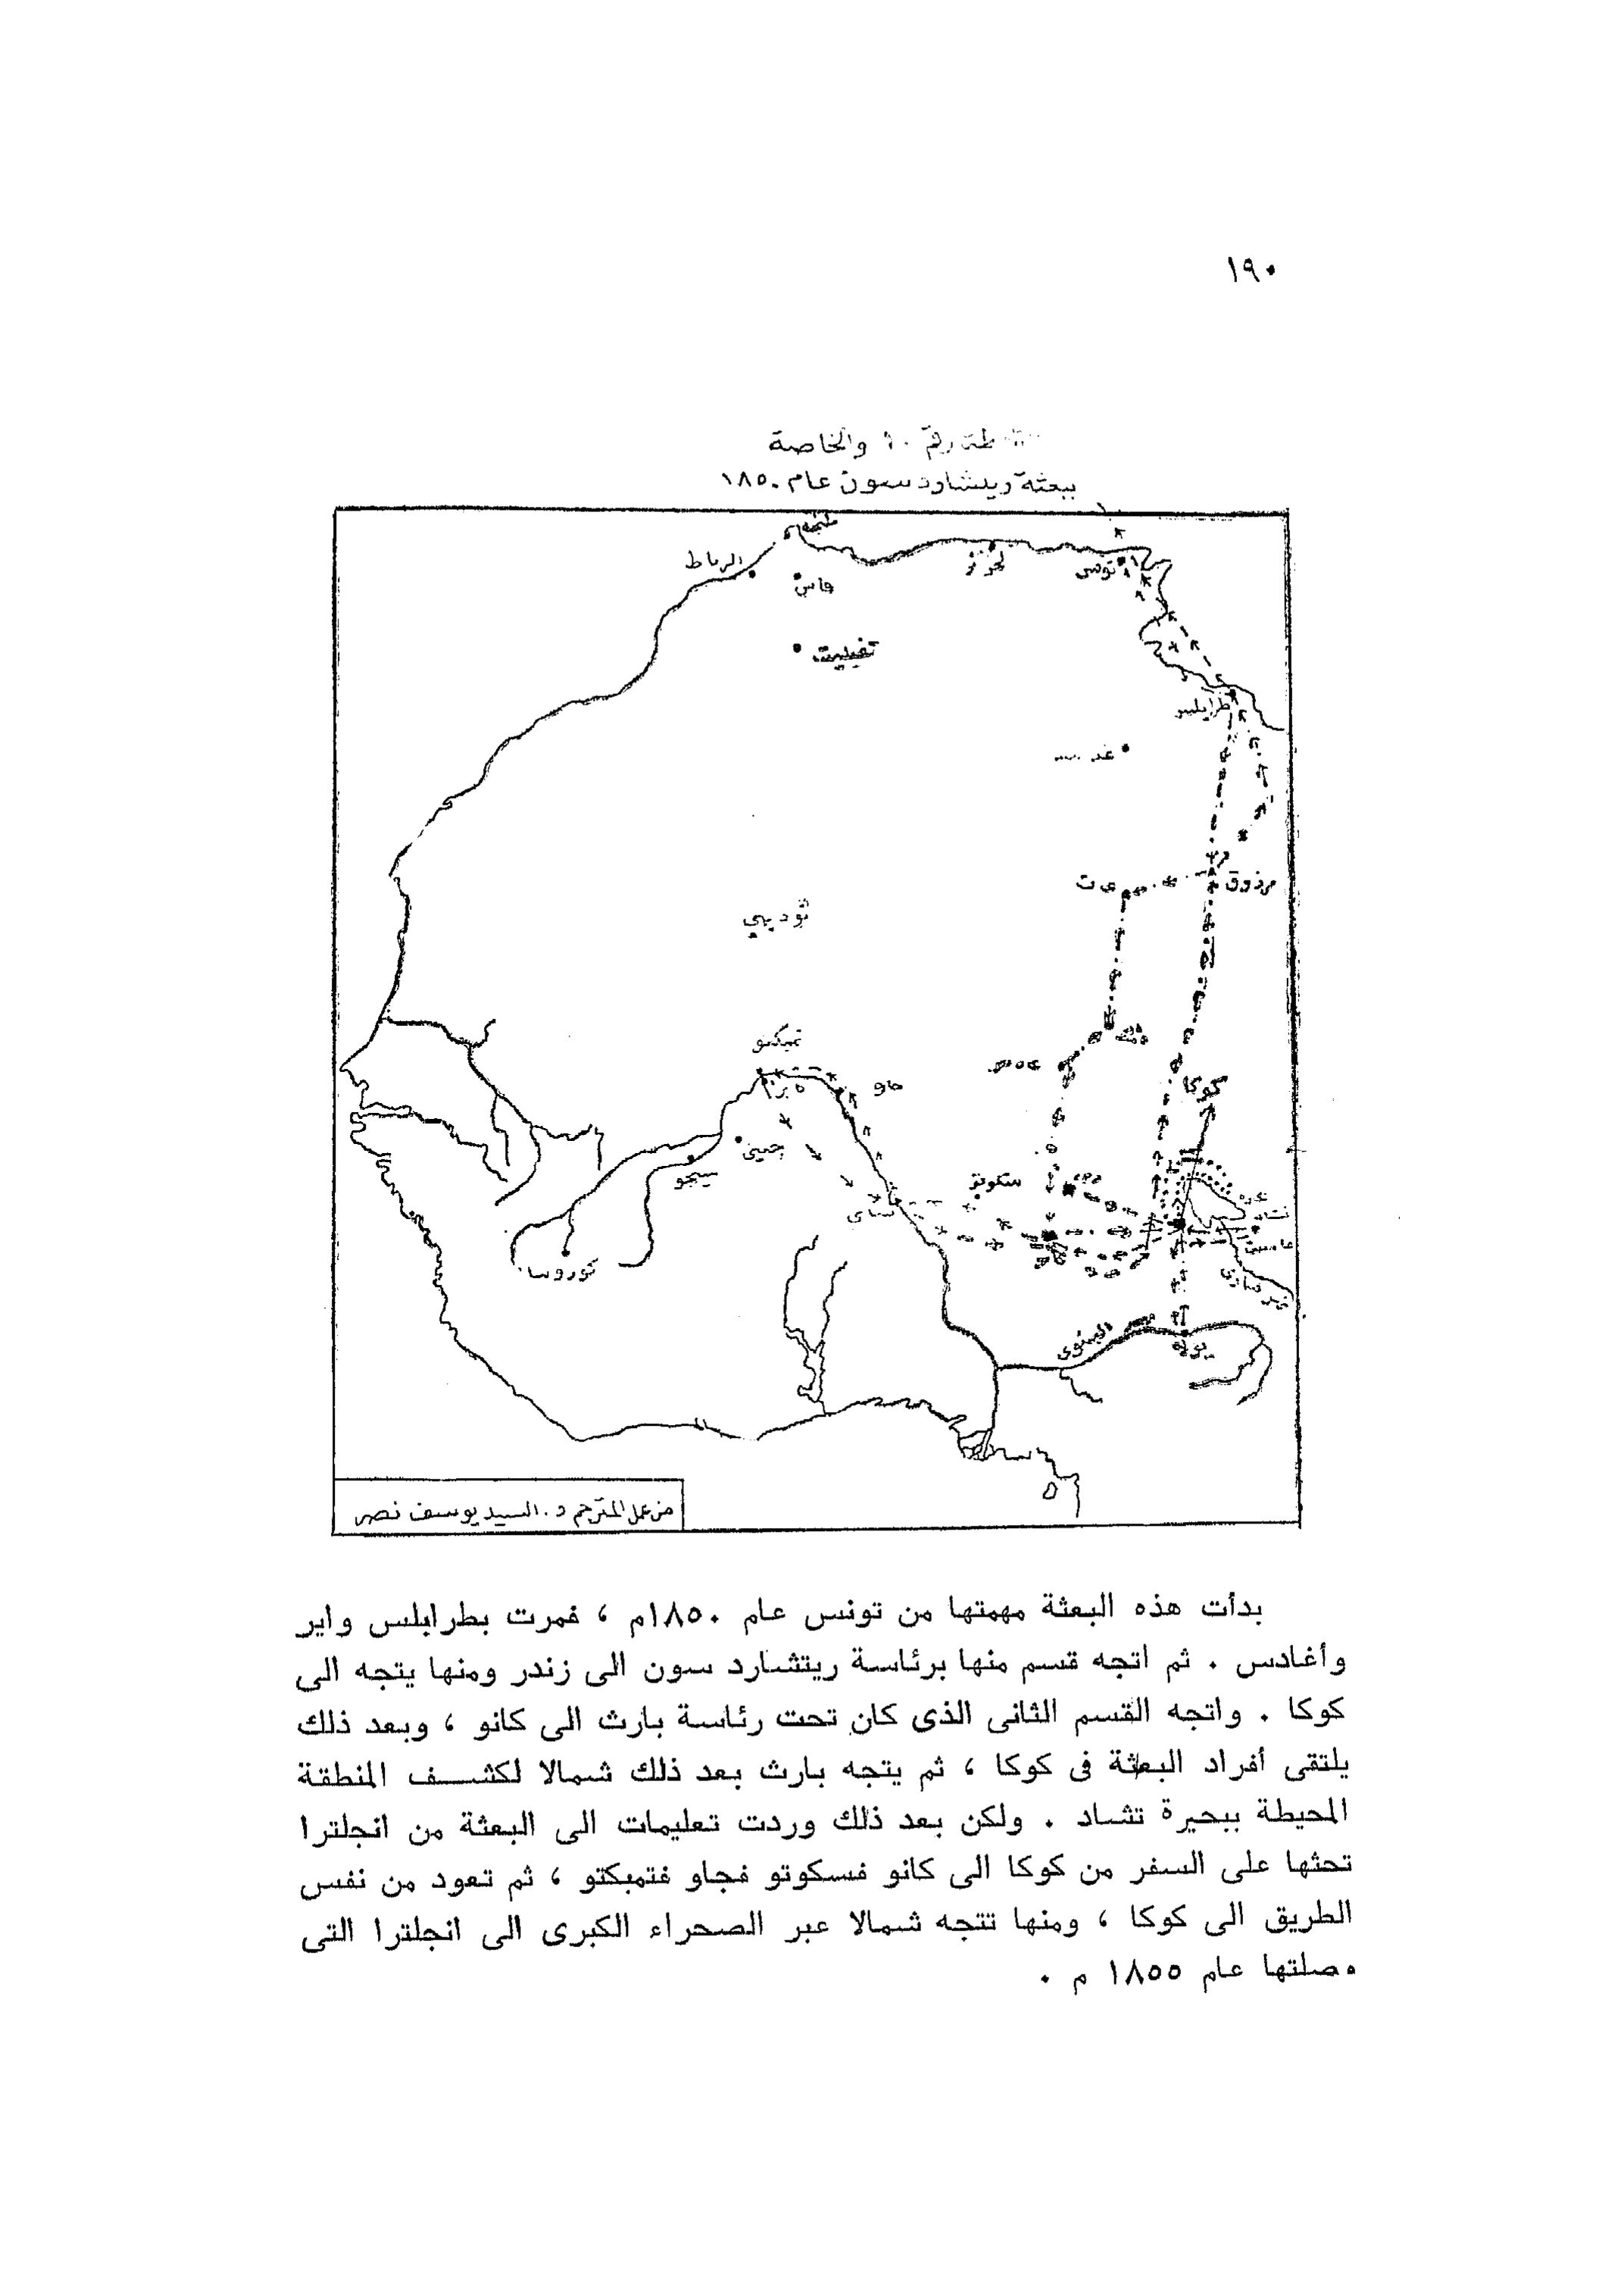 ١٩٠
رقم ١٠ والخاصة
ببعثة ريتشارد سون عام ١٨٥٠
طنجة
الرباط
فاس
تونس
تفيليت
طرابلس
مرذوق
تمبكتو
كوكا
جاو
جينى
سيجو
سكوتو
ساى
كوروسا
البنوى
من عمل المترجم د. السيد يوسف نصر
بدأت هذه البعثة مهمتها من تونس عام ١٨٥٠م ، فمرت بطرابلس واير
وأغادس . ثم اتجه قسم منها برئاسة ريتشارد سون الى زندر ومنها يتجه الى
كوكا . واتجه القسم الثانى الذى كان تحت رئاسة بارث الى كانو ، وبعد ذلك
يلتقى أفراد البعثة فى كوكا ، ثم يتجه بارث بعد ذلك شمالا لكشف المنطقة
المحيطة ببحيرة تشاد . ولكن بعد ذلك وردت تعليمات الى البعثة من انجلترا
تحثها على السفر من كوكا الى كانو فسكوتو فجاو فتمبكتو ، ثم تعود من نفس
الطريق الى كوكا ، ومنها تتجه شمالا عبر الصحراء الكبرى الى انجلترا التى
وصلتها عام ١٨٥٥ م .